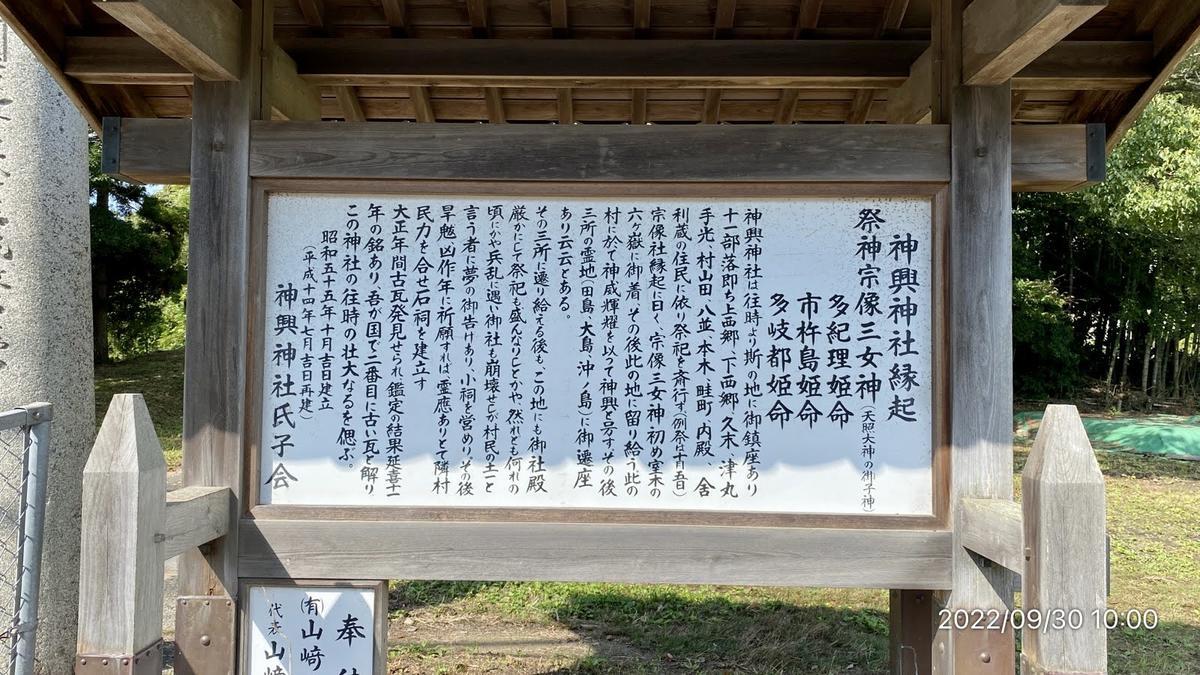 神興神社縁起
祭神宗像三女神(天照大神の御子神)
多紀理姫命
市杵島姫命
多岐都姫命
神興神社は往時より斯の地に御鎮座あり
十一部落即ち上西郷、下西郷、久末、津丸
手光、村山田、八並、本木、畦町、内殿、舎
利蔵の住民に依り祭祀を斉行す(例祭は十月吉日)
宗像社縁起に曰く、宗像三女神初め室木の
六ヶ嶽に御着、その後此の地に留り給う此の
村に於て神威輝耀を以って神興と号す、その後
三所の霊地(田島、大島、沖ノ島)に御遷座
あり云云とある。
その三所に遷り給える後も、この地にも御社殿
厳かにして祭祀も盛んなりしとかや然れども何れの
頃にかや兵乱に遇い御社も崩壊せしが村民の土と
言う者に夢の御告げあり、小祠を営めり、その後
旱魃凶作年に祈願すれば霊應ありとて隣村
民力を合せ石祠を建立す
大正年間古瓦発見せられ鑑定の結果延喜十一
年の銘あり、吾が国で二番目に古い瓦を解り
この神社の往時の壮大なるを偲ぶ。
昭和五十五年十月吉日建立
(平成十四年七月吉日再建)
神興神社氏子会
奉
(有)山﨑
代表山﨑
2022/09/30 10:00